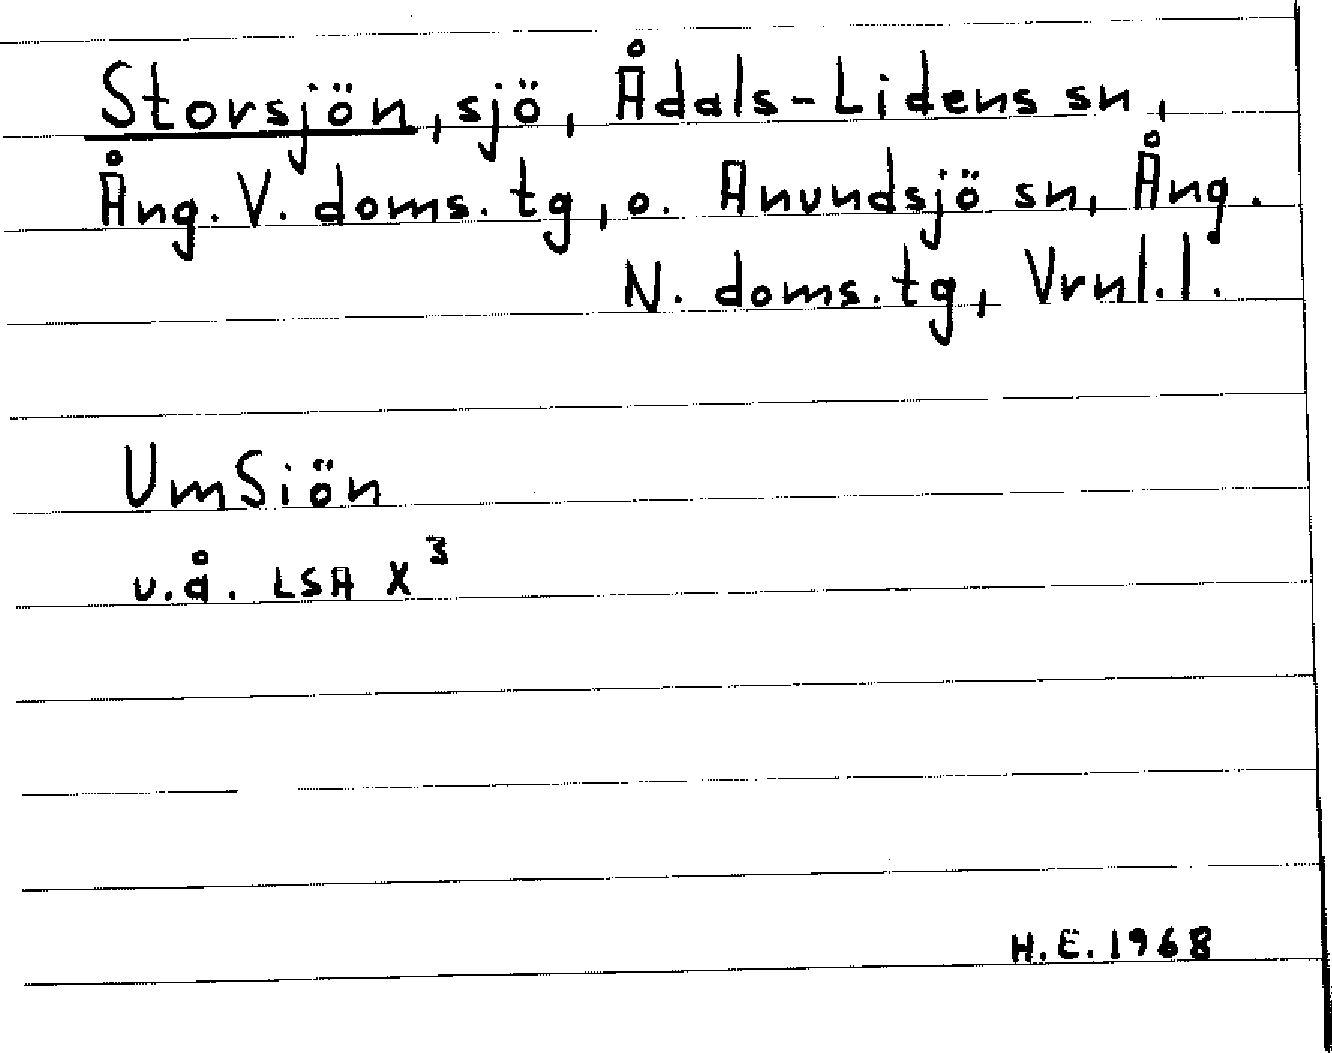 Storsjön, sjö, Ådals-Lidens sn,
Ång. V. doms. tg, o. Anundsjö sn, Ång.
N. doms. tg, Vrnl. l.
UmSiön
u.å. LSA X³
H.E. 1968